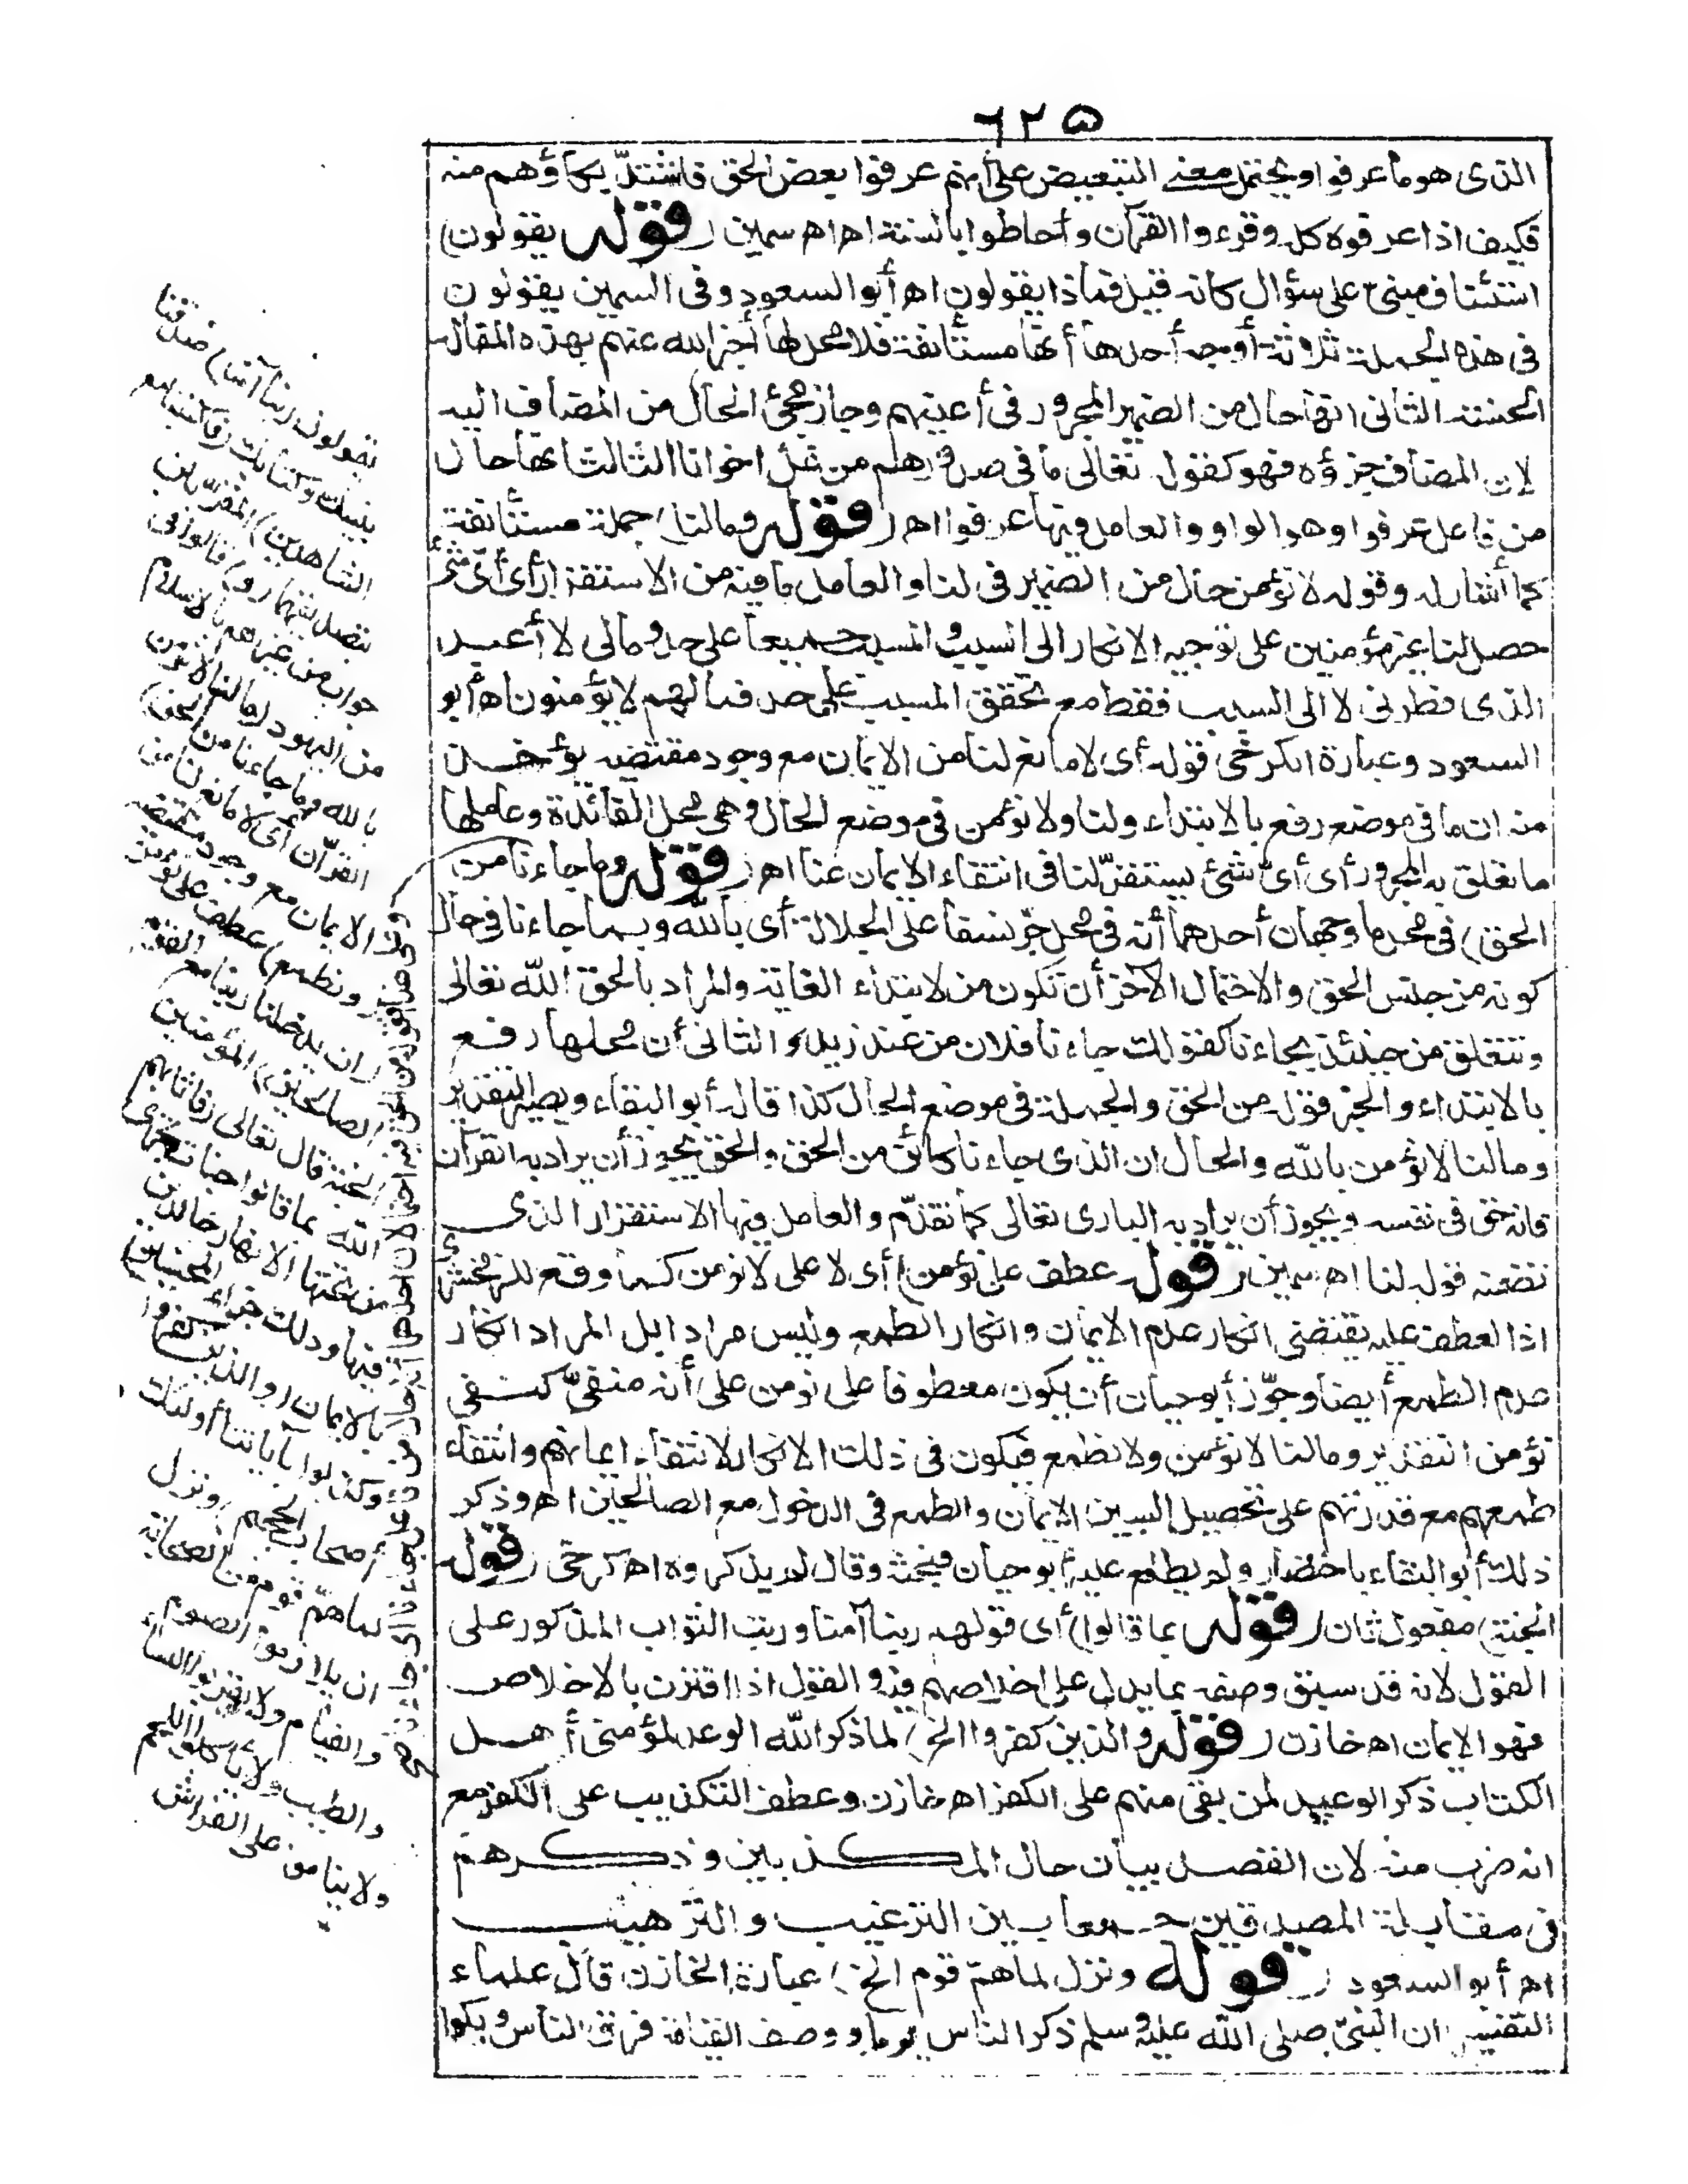 ٦٢٥
الذى هو ما عرفوا ويحتمل معنى التبعيض على أنهم عرفوا بعض الحق فاشتدّ بكاؤهم منه
فكيف اذا عرفوه كله وقرءوا القرآن وأحاطوا بالسنة اه اه سمين (قوله يقولون)
استئناف مبنى على سؤال كانه قيل فماذا يقولون اه أبو السعود وفى السمين يقولون
فى هذه الجملة ثلاثة أوجه أحدها أنها مستأنفة فلا محل لها أخبر الله عنهم بهذه المقالة
الحسنة الثانى انها حال من الضمير المجرور فى أعينهم وجاز مجئ الحال من المضاف اليه
لان المضاف جزؤه فهو كقوله تعالى ما فى صدورهم من غل اخوانا الثالث انها حال
من فاعل عرفوا وهو الواو والعامل فيها عرفوا اه (قوله وما لنا) جملة مستأنفة
كما أشار له وقوله لا نؤمن حال من الضمير فى لنا والعامل ما فيه من الاستقرار أى أىّ شئ
حصل لنا غير مؤمنين على توجيه الانكار الى السبب والمسبب جميعا على حد وما لى لا أعبد
الذى فطرنى لا الى السبب فقط مع تحقق المسبب على حد فما لهم لا يؤمنون اه أبو
السعود وعبارة الكرخى قوله أى لا مانع لنا من الايمان مع وجود مقتضيه يؤخذ
منه ان ما فى موضع رفع بالابتداء ولنا ولا نؤمن فى موضع الحال وهى محل الفائدة وعاملها
ما تعلق به المجرور أى أىّ شئ يستقرّ لنا فى انتفاء الايمان عنا اه (قوله وما جاءنا من
الحق) فى محل ما وجهان أحدهما أنه فى محل جرّ نسقا على الجلالة أى بالله وبما جاءنا فى حال
كونه من جنس الحق والاحتمال الآخر أن تكون من لابتداء الغاية والمراد بالحق الله تعالى
وتتعلق من حينئذ بجاءنا كقولك جاءنا فلان من عند زيد والثانى أن محلها رفع
بالابتداء والخبر قوله من الحق والجملة فى موضع الحال كذا قاله أبو البقاء ويصير التقدير
وما لنا لا نؤمن بالله والحال ان الذى جاءنا كائن من الحق والحق يجوز أن يراد به القرآن
فانه حق فى نفسه ويجوز أن يراد به البارى تعالى كما تقدّم والعامل فيها الاستقرار الذى
تضمنه قوله لنا اه سمين (قوله عطف على نؤمن) أى لا على لا نؤمن كما وقع للزمخشرى
اذ العطف عليه يقتضى انكار عدم الايمان وانكار الطمع وليس مرادا بل المراد انكار
عدم الطمع أيضا وجوّز أبو حيان أن يكون معطوفا على نؤمن على أنه منفىّ كنفى
نؤمن التقدير وما لنا لا نؤمن ولا نطمع فيكون فى ذلك الانكار لانتفاء ايمانهم وانتفاء
طمعهم مع قدرتهم على تحصيل الشيئين الايمان والطمع فى الدخول مع الصالحين اه وذكر
ذلك أبو البقاء باختصار ولم يطلع عليه أبو حيان فبحثه وقال لم يذكروه اه كرخى (قوله
الجنة) مفعول ثان (قوله بما قالوا) أى قولهم ربنا آمنا ورتب الثواب المذكور على
القول لانه قد سبق وصفه بما يدل على اخلاصهم فيه والقول اذا اقترن بالاخلاص
فهو الايمان اه خازن (قوله والذين كفروا الخ) لما ذكر الله الوعد لمؤمنى أهل
الكتاب ذكر الوعيد لمن بقى منهم على الكفر اه خازن وعطف التكذيب على الكفر مع
انه ضرب منه لان القصد بيان حال المكذبين وذكرهم
فى مقابلة المصدقين جمعا بين الترغيب والترهيب
اه أبو السعود (قوله ونزل لما همّ قوم الخ) عبارة الخازن قال علماء
التفسير ان النبىّ صلى الله عليه وسلم ذكر الناس يوما ووصف القيامة فرق الناس وبكوا
يقولون ربنا آمنا) صدقنا
بنبيك وكتابك (فاكتبنا مع
الشاهدين) المقرّبين
بتصديقهما (و) قالوا فى
جواب من عيرهم بالاسلام
من اليهود (ما لنا لا نؤمن
بالله وما جاءنا من الحق)
القرآن أى لا مانع لنا من
الايمان مع وجود مقتضيه
(ونطمع) عطف على نؤمن
(ان يدخلنا ربنا مع القوم
الصالحين) المؤمنين
الجنة قال تعالى (فاثابهم
الله بما قالوا جنات تجرى
من تحتها الانهار خالدين
فيها وذلك جزاء المحسنين)
بالايمان (والذين كفروا
وكذبوا بآياتنا أولئك
أصحاب الجحيم) ونزل
لما همّ قوم من الصحابة
ان يلازموا الصوم
والقيام ولا يقربوا النساء
والطيب ولا يأكلوا اللحم
ولا يناموا على الفراش